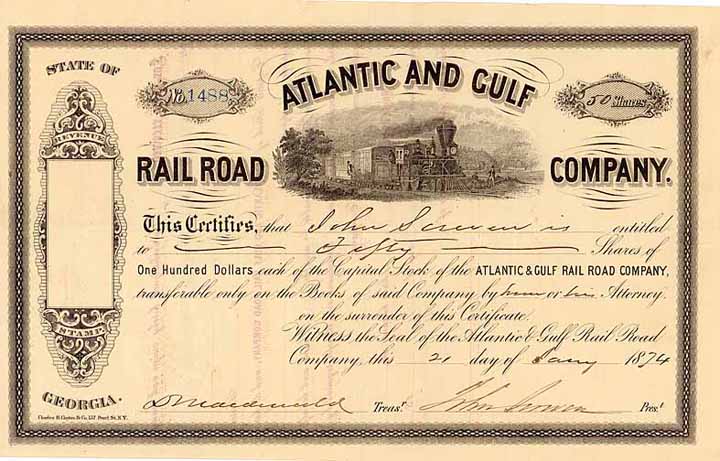 STATE OF
No. 1488
ATLANTIC AND GULF
50 Shares
REVENUE
RAIL ROAD
COMPANY.
This Certifies, that John Screven is entitled
to Fifty Shares of
One Hundred Dollars each of the Capital Stock of the ATLANTIC & GULF RAIL ROAD COMPANY,
transferable only on the Books of said Company by him or his Attorney
on the surrender of this Certificate.
Witness the Seal of the Atlantic & Gulf Rail Road
Company, this 21 day of Jany 1874
STAMP
GEORGIA.
Treasr.
John Screven
Prest.